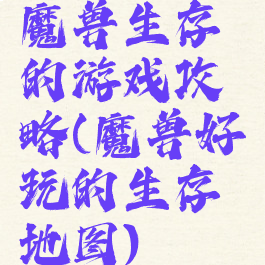 魔兽生存
的游戏攻
略(魔兽好
玩的生存
地图)